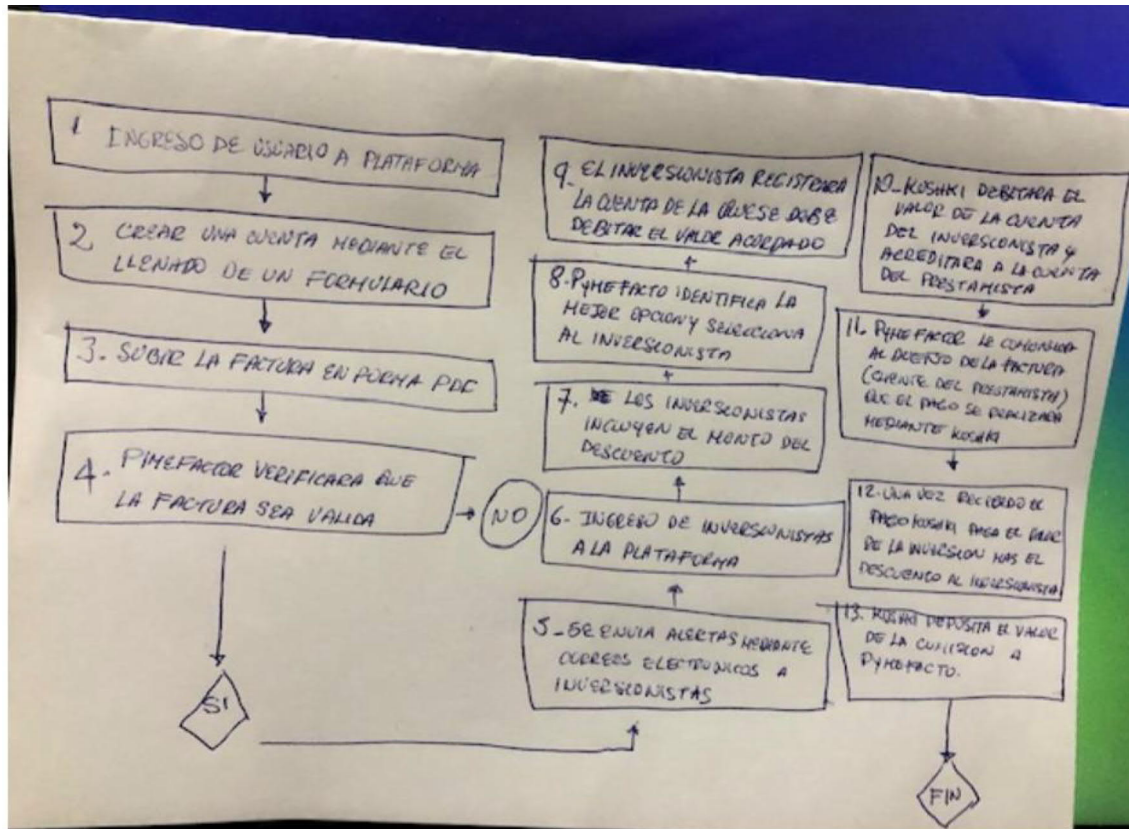 1 INGRESO DE USUARIO A PLATAFORMA
2 CREAR UNA CUENTA MEDIANTE EL
LLENADO DE UN FORMULARIO
3. SUBIR LA FACTURA EN FORMA PDF
4. PIMEFACTOR VERIFICARA QUE
LA FACTURA SEA VALIDA
NO
SI
5_ SE ENVIA ALERTAS MEDIANTE
CORREOS ELECTRONICOS A
INVERSIONISTAS
6- INGRESO DE INVERSIONISTAS
A LA PLATAFORMA
7. LOS INVERSIONISTAS
INCLUYEN EL MONTO DEL
DESCUENTO
8. PYMEFACTO IDENTIFICA LA
MEJOR OPCION Y SELECCIONA
AL INVERSIONISTA
9_ EL INVERSIONISTA REGISTRARA
LA CUENTA DE LA QUE SE DEBE
DEBITAR EL VALOR ACORDADO
10_ KUSHKI DEBITARA EL
VALOR DE LA CUENTA
DEL INVERSIONISTA Y
ACREDITARA A LA CUENTA
DEL PRESTAMISTA
11. PYMEFACTOR LE COMUNICA
AL DUEÑO DE LA FACTURA
(CLIENTE DEL PRESTAMISTA)
QUE EL PAGO SE REALIZARA
MEDIANTE KUSHKI
12. UNA VEZ RECIBIDO EL
PAGO KUSHKI PAGA EL VALOR
DE LA INVERSION MAS EL
DESCUENTO AL INVERSIONISTA
13. KUSHKI DEPOSITA EL VALOR
DE LA COMISION A
PYMEFACTO.
FIN